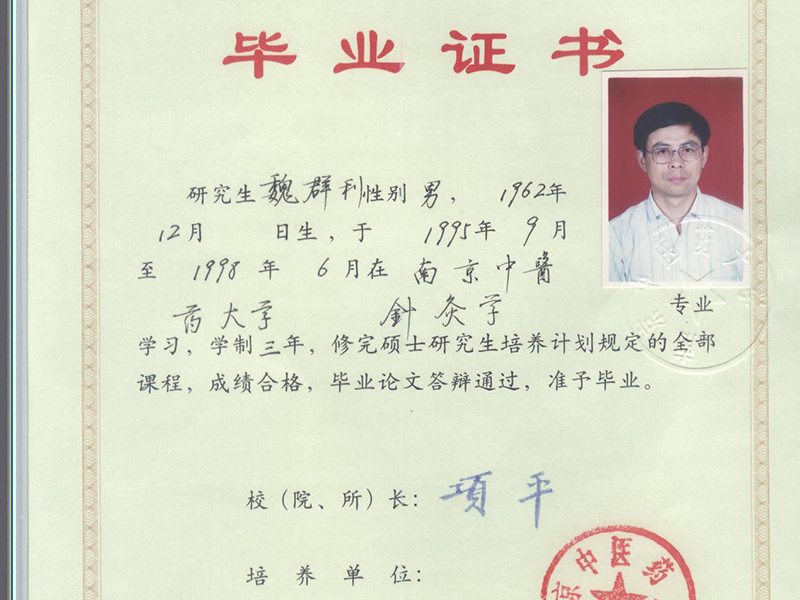 毕业证书
研究生魏群利性别男， 1962年
12月 日生，于 1995年 9月
至 1998年 6月在 南京中醫
药大学 針灸学 专业
学习，学制三年，修完硕士研究生培养计划规定的全部
课程，成绩合格，毕业论文答辩通过，准予毕业。
校（院、所）长：項平
培养单位：
京中医药